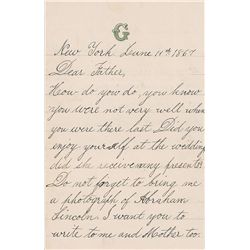 G
New York June 11th 1867
Dear Father,
How do you do, you know
you were not very well when
you were there last Did you
enjoy yourself at the wedding
did she receive many presents?
Do not forget to bring me
a photograph of Abraham
Lincoln. I want you to
write to me and Mother too.